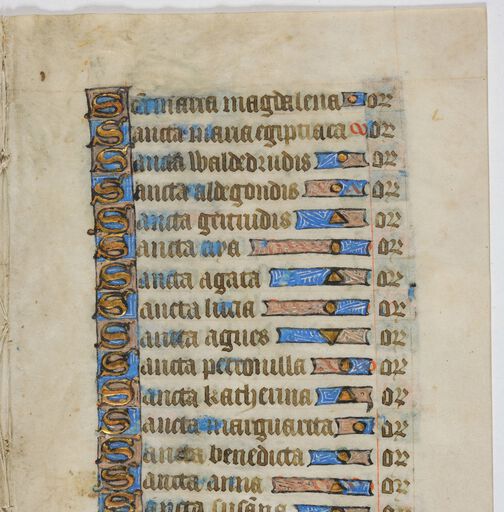 Sca maria magdalena or
Sancta maria egiptiaca or
Sancta Waldedrudis or
Sancta aldegondis or
Sancta gertrudis or
Sancta aya or
Sancta agata or
Sancta lucia or
Sancta agnes or
Sancta petronilla or
Sancta katherina or
Sancta marguareta or
Sancta benedicta or
Sancta anna or
Sancta susan̄